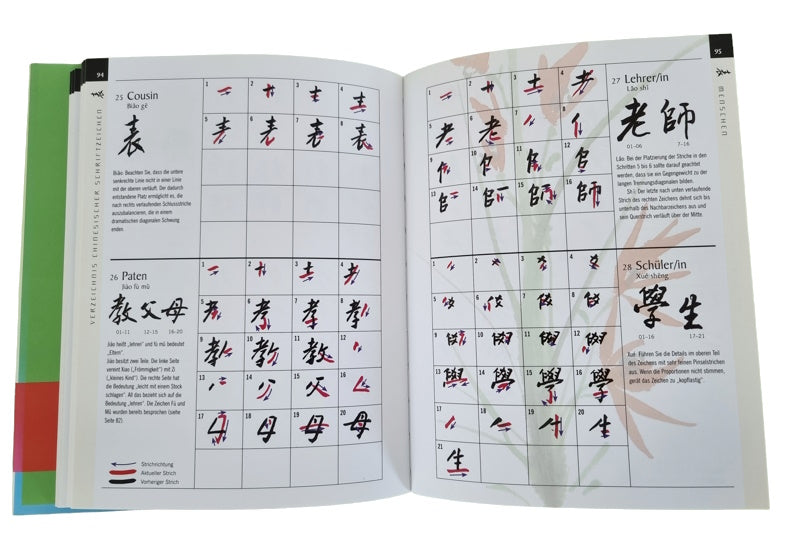 94
VERZEICHNIS CHINESISCHER SCHRIFTZEICHEN
25 Cousin
Biǎo gē
表
Biǎo: Beachten Sie, dass die untere
senkrechte Linie nicht in einer Linie
mit der oberen verläuft. Der dadurch
entstandene Platz ermöglicht es, die
nach rechts verlaufenden Schlussstriche
auszubalancieren, die in einem
dramatischen diagonalen Schwung
enden.
1 2 3 4
5 6 7 8
26 Paten
Jiào fù mǔ
教父母
01–11 12–15 16–20
Jiào heißt „lehren“ und fù mǔ bedeutet
„Eltern“.
Jiào besitzt zwei Teile: Die linke Seite
vereint Xiao („Frömmigkeit“) mit Zi
(„kleines Kind“). Die rechte Seite hat
die Bedeutung „leicht mit einem Stock
schlagen“. All das bezieht sich auf die
Bedeutung „lehren“. Die Zeichen Fù und
Mǔ wurden bereits besprochen (siehe
Seite 82).
1 2 3 4
5 6 7 8
9 10 11 12
13 14 15 16
17 18 19 20
Strichrichtung
Aktueller Strich
Vorheriger Strich
95
MENSCHEN
27 Lehrer/in
Lǎo shī
老師
01–06 7–16
Lǎo: Bei der Platzierung der Striche in den
Schritten 5 bis 6 sollte darauf geachtet
werden, dass sie ein Gegengewicht zu der
langen Trennungsdiagonalen bilden.
Shī: Der letzte nach unten verlaufende
Strich des rechten Zeichens dehnt sich bis
unterhalb des Nachbarzeichens aus und
sein Querstrich verläuft über der Mitte.
1 2 3 4
5 6 7 8
9 10 11 12
13 14 15 16
28 Schüler/in
Xué shēng
學生
01–16 17–21
Xué: Führen Sie die Details im oberen Teil
des Zeichens mit sehr feinen Pinselstrichen
aus. Wenn die Proportionen nicht stimmen,
gerät das Zeichen zu „kopflastig“.
1 2 3 4
5 6 7 8
9 10 11 12
13 14 15 16
17 18 19 20
21